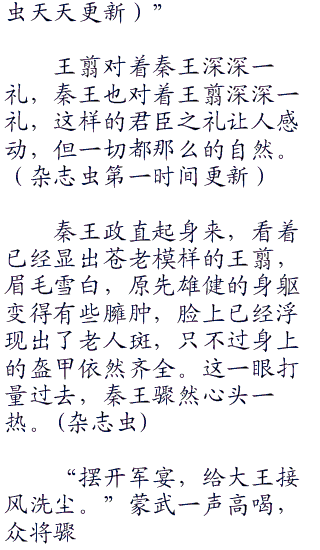 虫天天更新）”
王翦对着秦王深深一
礼，秦王也对着王翦深深一
礼，这样的君臣之礼让人感
动，但一切都那么的自然。
（杂志虫第一时间更新）
秦王政直起身来，看着
已经显出苍老模样的王翦，
眉毛雪白，原先雄健的身躯
变得有些臃肿，脸上已经浮
现出了老人斑，只不过身上
的盔甲依然齐全。这一眼打
量过去，秦王骤然心头一
热。(杂志虫)
“摆开军宴，给大王接
风洗尘。”蒙武一声高喝，
众将骤